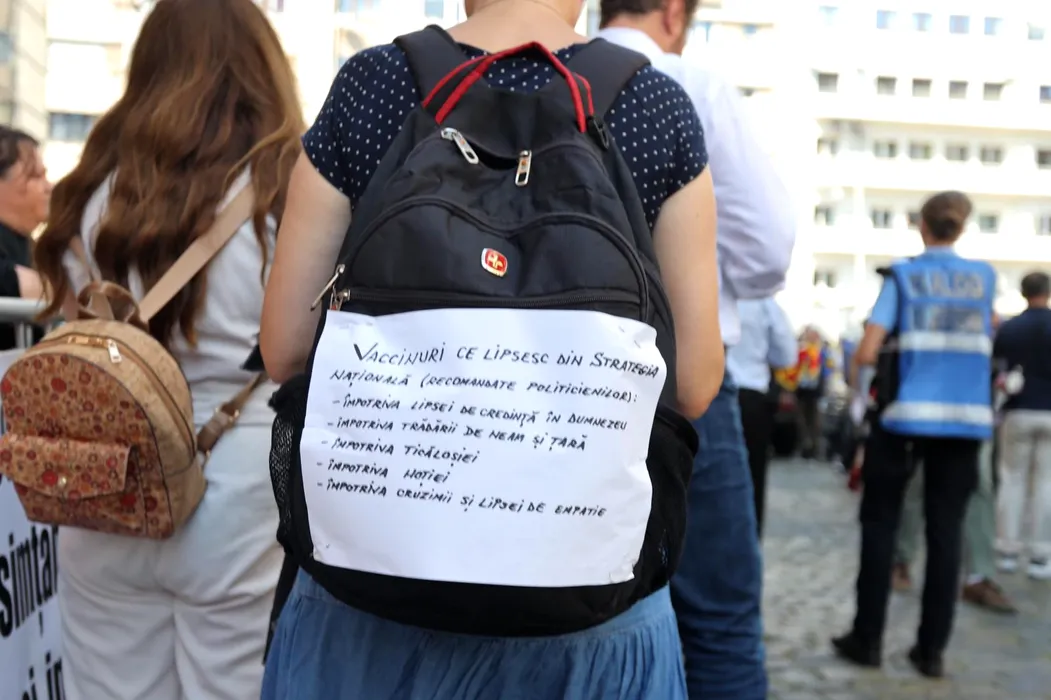 VACCINURI CE LIPSESC DIN STRATEGIA
NAȚIONALĂ (RECOMANDATE POLITICIENILOR):
- ÎMPOTRIVA LIPSEI DE CREDINȚĂ ÎN DUMNEZEU
- ÎMPOTRIVA TRĂDĂRII DE NEAM ȘI ȚARĂ
- ÎMPOTRIVA TICĂLOȘIEI
- ÎMPOTRIVA HOȚIEI
- ÎMPOTRIVA CRUZIMII ȘI LIPSEI DE EMPATIE